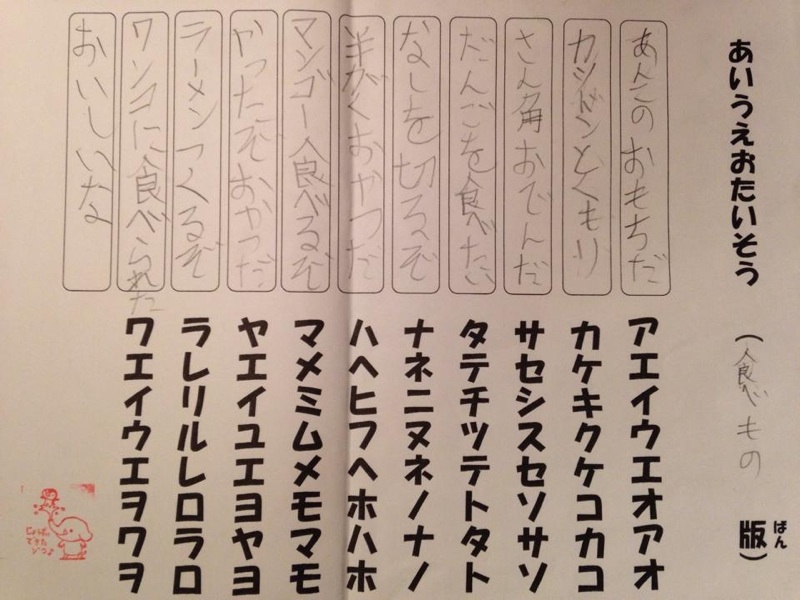 あいうえおたいそう (食べもの版)
ばん
あんこのおもちだ アエイウエオアオ
カツドンとくもり カケキクケコカコ
さん角おでんだ サセシスセソサソ
だんごを食べたい タテチツテトタト
なしを切るぞ ナネニヌネノナノ
半がくおやつだ ハヘヒフヘホハホ
マンゴー食べるぞ マメミムメモマモ
やったぞおかつだ ヤエイユエヨヤヨ
ラーメンつくるぞ ラレリルレロラロ
ワンコに食べられた ワエイウエヲワヲ
おいしいな